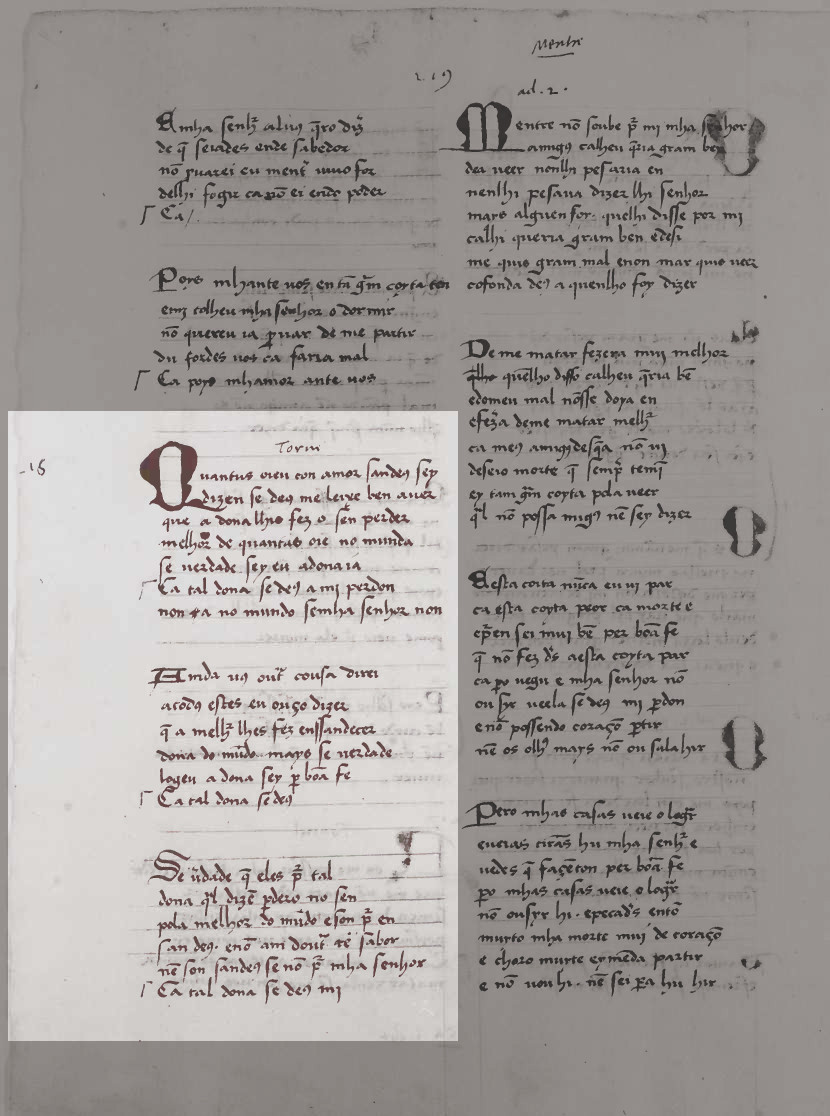 Menhr
219
A mha senhr̃ aluus q̃ro diz̃
de q̃ seiades ende sabedor
nõ guarei eu ment̃ uiuo for
delhi fogir ca nõ ei endo poder
Ca
Poys mhante uos en tã gr̃m coyta ten
eimi tolheu mha senhor o dormir
nõ quereu ia p̱uar de me partir
du fordes uos ca faria mal
Ca poys mhamor ante uos
18
Torn
Quantus oieu con amor sandeus sey
dizen se deus me leixe ben auer
que a dona lhis fez o sẽn perder
melhor de quantas oie no munda
se uerdade sey eu a dona ia
Ca tal dona se deus a mi perdon
non sa no mundo se mha senhor non
Ainda uus out̃ cousa direi
atodus estes eu ouço dizer
q̃ a melhr̃ lhes fez enssandecer
dona do mũdo mays se uerdade
logeu a dona sey p̱ boã fe
Ca tal dona se deus
Se ũdade q̃ eles pr̃ tal
dona q̃l dizẽ p̱dero no sen
pola melhor do mũdo e son pr̃ en
sandeus enõ am dout̃ rẽ sabor
nẽ son sandeus se nõ pr̃ mha senhor
Ca tal dona se deus mi
ad . 2 .
Mentre nõ soube pr̃ mi mha senhor
amigus calheu q̃ria gram ben
dea ueer nonlhi pesaria en
nenlhi pesaua dizer lhi senhor
mays alguen foy quelhi disse por mi
calhi queria gram ben e desi
me quis gram mal e non mar quis ueer
cofonda deus a quenlho foy dizer
De me matar fezera mui melhor
quẽlho disso calheu q̃ria bẽ
edomeu mal nõsse doya en
efez̃a deme matar melhr̃
ca meus amigus desq̃a nõ ui
deseio morte q̃ semp̃r temi
ey tam gr̃m coyta pola ueer
q̃l nõ possa migus nẽ sey dizer
Aesta coita nũca eu ui par
ca esta coyta peor ca morte e
ep̃ren sei mui bẽ per boã fe
q̃ nõ fez d̃s aesta coyta par
ca p̱o uegu e mha senhor nõ
ou syr ueela se deus mi p̱don
e nõ possendo coraçõ p̱tir
nẽ os olhus mays nõ ou sala hir
Pero mhas casas ueie o logr̃
eueias tirãs hu mha senhr̃ e
uedes q̃ façẽ ton per boã fe
p̱o mhas casas ueie o logr̃
nõ ousyr hi epecad̃s entõ
muyto mha morte mui de coraçõ
e choro muyte ey mẽda partir
e nõ uou hi nẽ sei p̱a hu hir